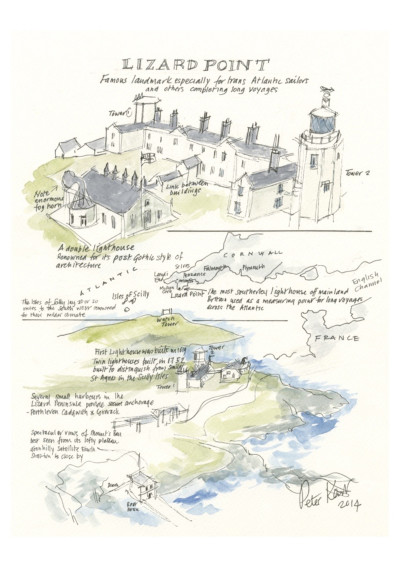 LIZARD POINT
Famous landmark especially for trans Atlantic sailors
and others completing long voyages
Tower 1
Tower 2
Note
enormous
fog horn
Link between
buildings
A double lighthouse
Renowned for its post Gothic style of
architecture
ATLANTIC
CORNWALL
Falmouth
Plymouth
Lizard Point
Isles of Scilly
English
Channel
FRANCE
The most southerly lighthouse of mainland
used as a measuring point for long voyages
across the Atlantic
The Isles of Scilly lay 25 or so
miles to the
to their milder climate
Watch
Tower
First Lighthouse was built in 1619
Twin lighthouses built in 1752
built to distinguish from
St Agnes in the Scilly Isles
Tower
Tower 1
Several small harbours in the
Lizard Peninsula provide secure anchorage
Porthleven Cadgwith &
Spectacular views of Mount's Bay
best seen from its lofty plateau
Goonhilly Satellite Earth
Station is close by
Peter Kent
2014